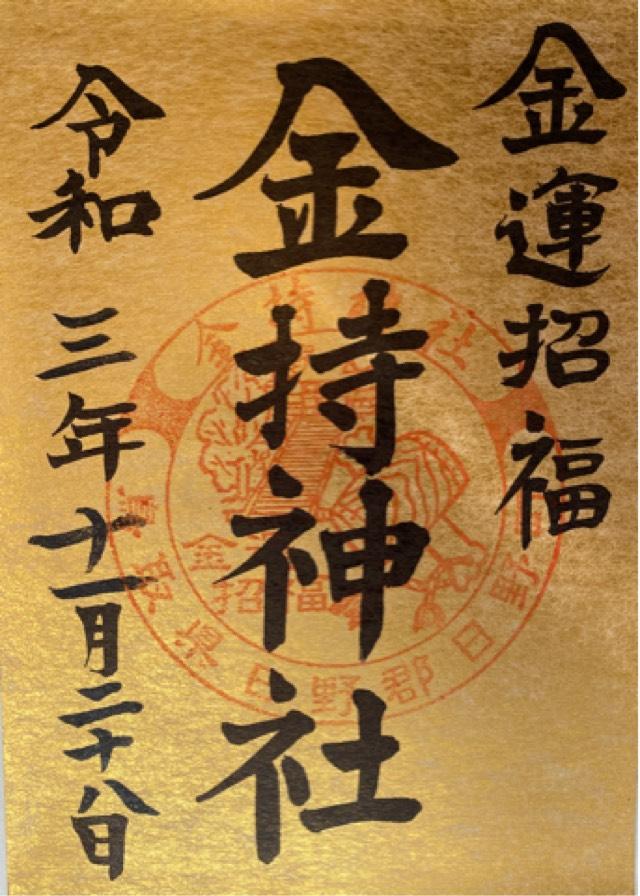 金運招福
金持神社
令和三年十一月二十八日
金持神社
鳥取県日野郡日野町
招福